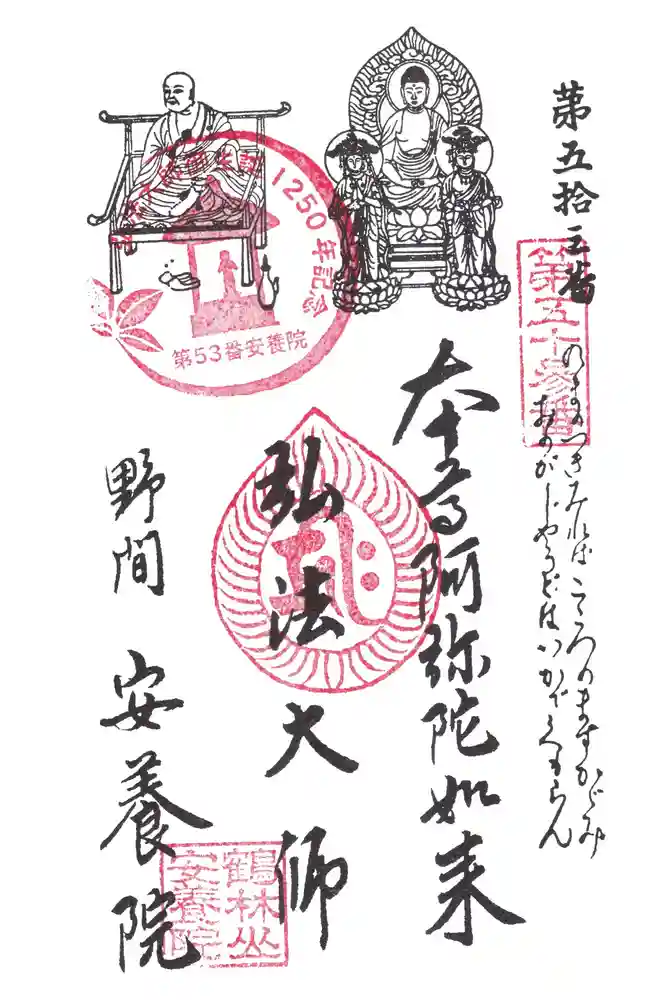 第五拾三番
第五十参番
のまのつきみればこころのますかがみ
おのがしやうどはいかでくもらん
本尊阿弥陀如来
弘法大師
1250年記念
第53番安養院
野間
安養院
鶴林山
安養院